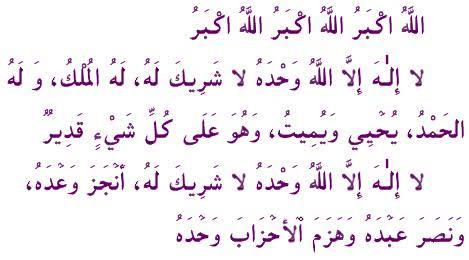 اللَّهُ اكْبَرُ اللَّهُ اكْبَرُ اللَّهُ اكْبَرُ
لا إِلٰـهَ إِلَّا اللَّهُ وَحْدَهُ لا شَرِيكَ لَهُ، لَهُ المُلْكُ، وَ لَهُ
الحَمْدُ، يُحْيِي وَيُمِيتُ، وَهُوَ عَلَى كُلِّ شَيْءٍ قَدِيرٌ
لا إِلٰـهَ إِلَّا اللَّهُ وَحْدَهُ لا شَرِيكَ لَهُ، أَنْجَزَ وَعْدَهُ،
وَنَصَرَ عَبْدَهُ وَهَزَمَ الْأَحْزَابَ وَحْدَهُ